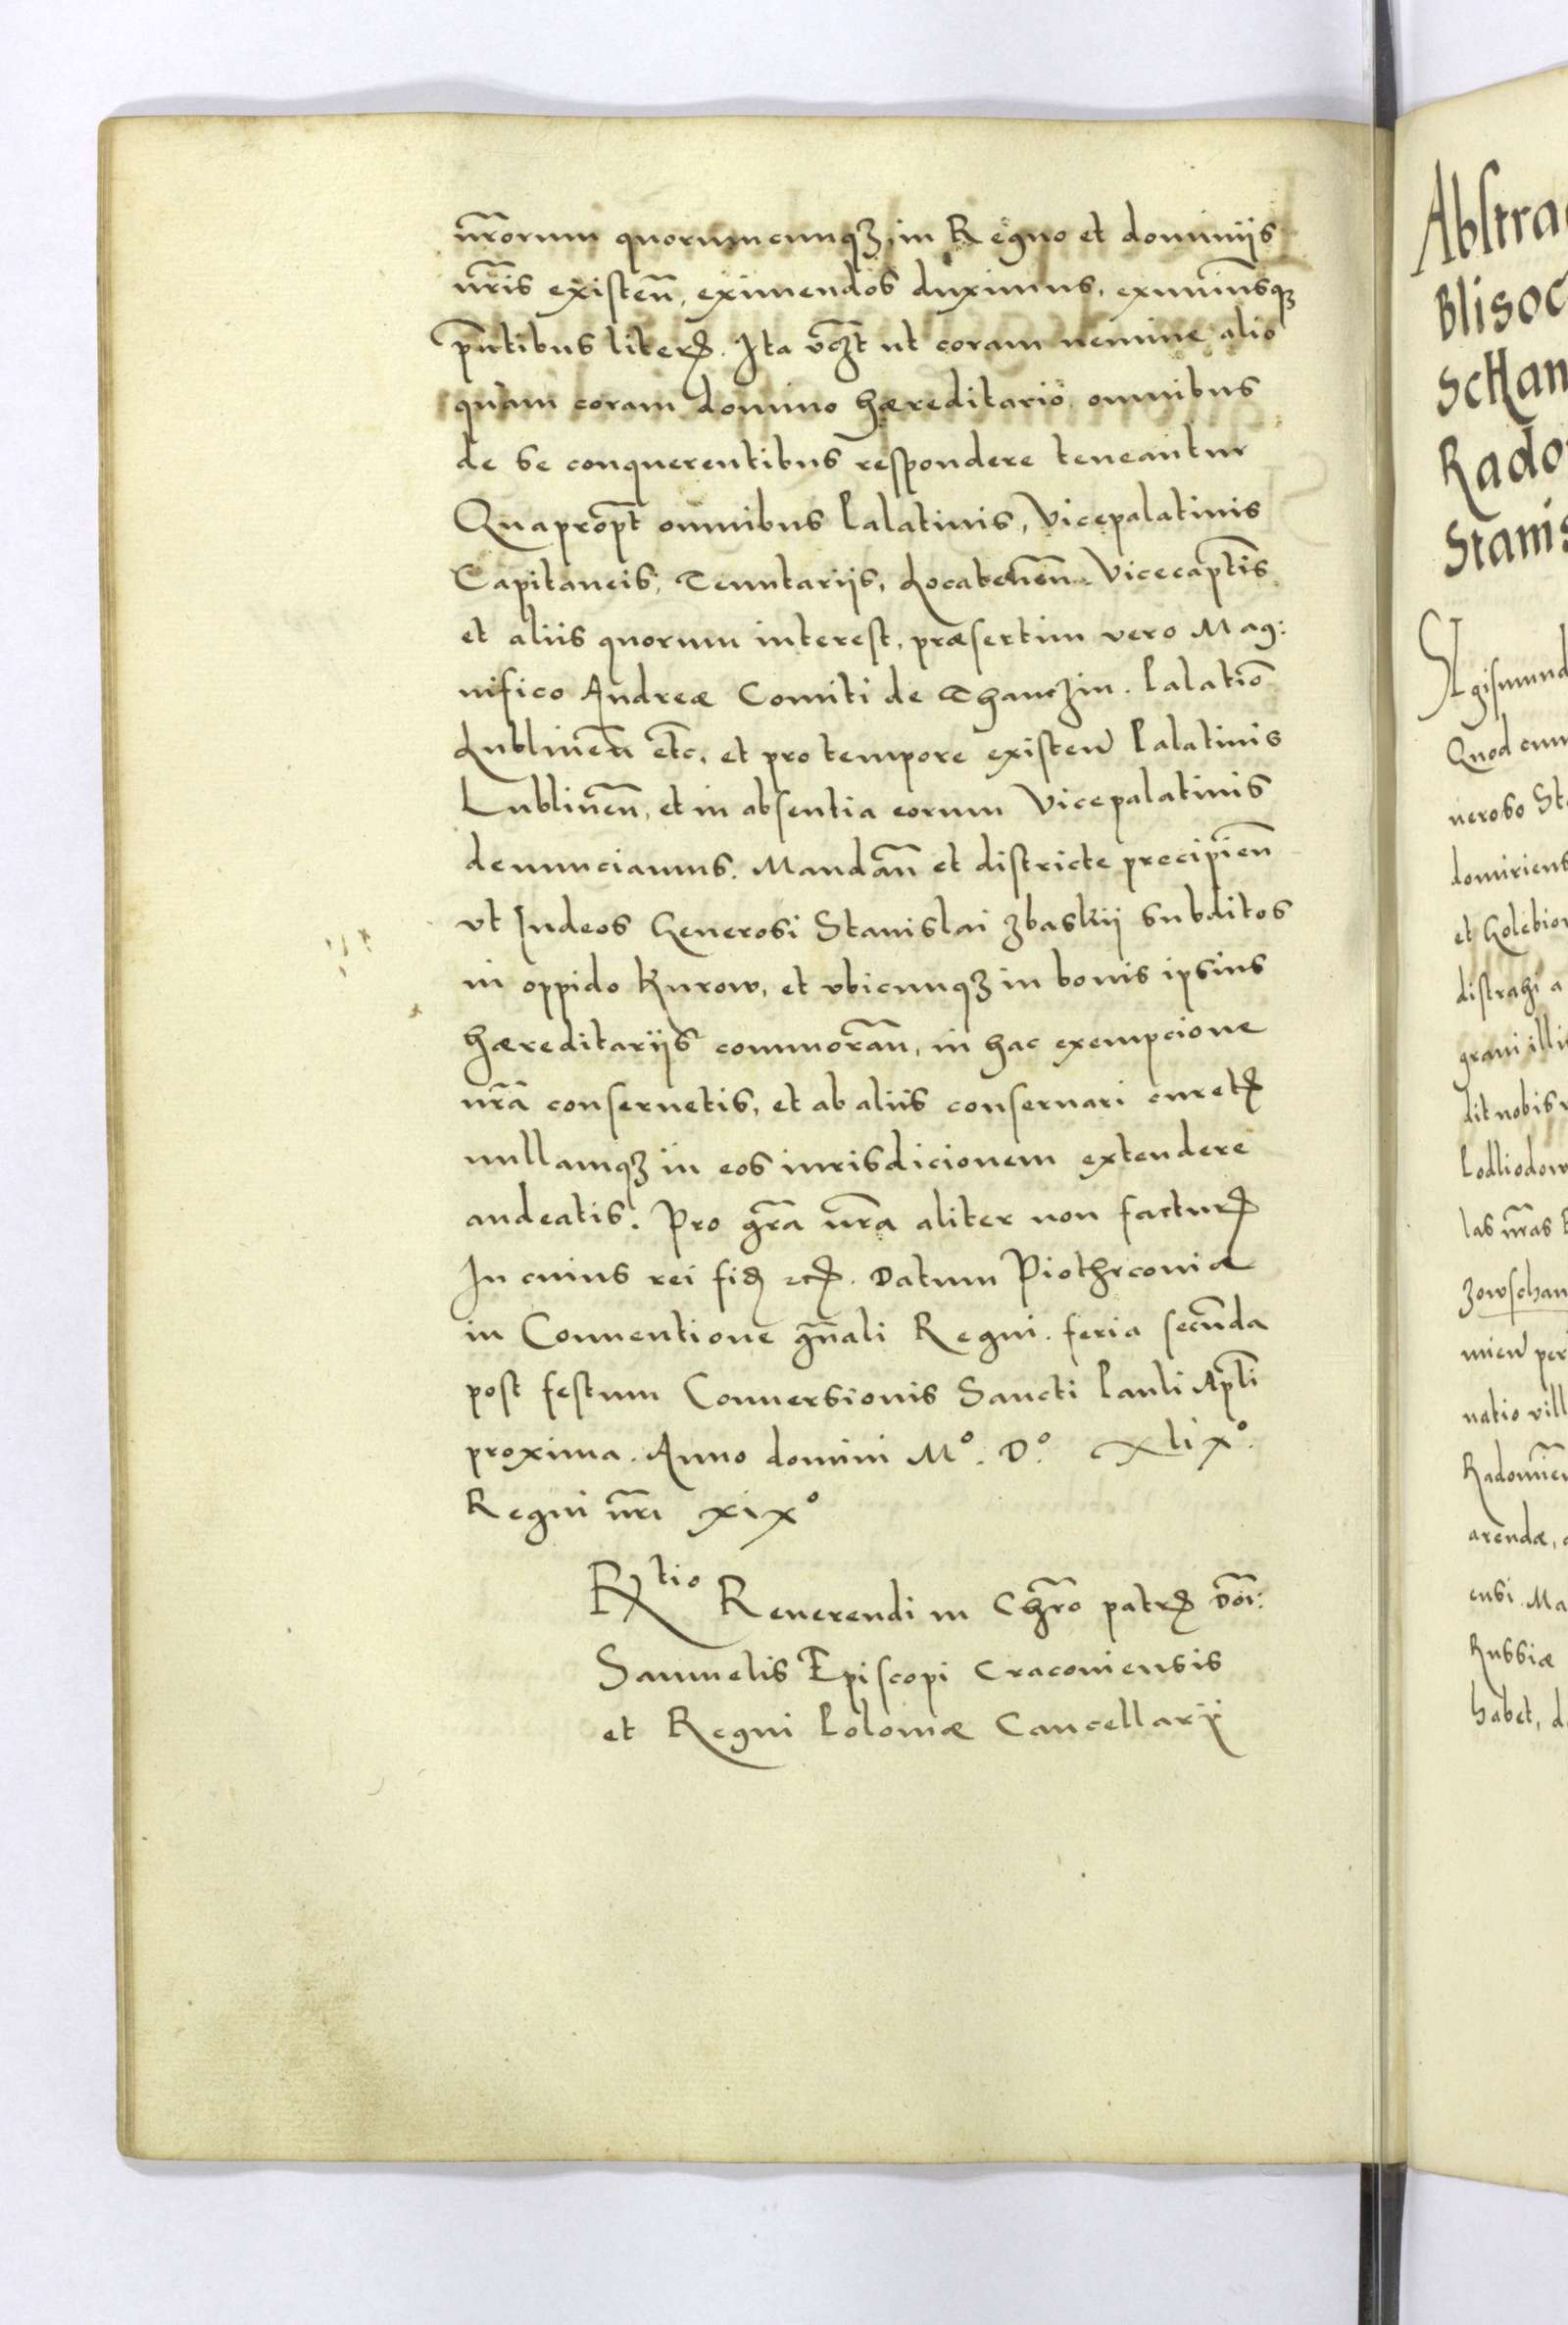 nr̃orum quorumcunqꝫ, in Regno et dominijs
nr̃is existen̄, eximendos duximus, eximimusqꝫ
pñtibus literꝭ. Ita vcꝫt ut coram nemine alio
quam coram domino hæreditario omnibus
de se conquerentibus respondere teneantur
Quapropt̄ omnibus Palatinis, Vicepalatinis
Capitaneis, Tenutariis, Locatenen̄. Vicecaptīs
et aliis quorum interest, præsertim vero Mag:
nifico Andreæ Comiti de Thanczin. Palatio̅
Lublinen̄ etc̄. et pro tempore existen̄ Palatinis
Lublinen̄, et in absentia eorum Vicepalatinis
denunciamus. Mandan̄ et districte precipien̄
vt Iudeos Generosi Stanislai Zbaskij subditos
in oppido Kurow, et vbicunqꝫ in bonis ipsius
hæreditarijs commoran̄, in hac exempcione
nr̃a conseruetis, et ab aliis conseruari curetꝭ
nullamqꝫ in eos iurisdicionem extendere
audeatis. Pro gr̃a nr̃a aliter non facturꝭ
In cuius rei fidꝭ ꝛcꝭ. Datum Piothrconiæ
in Conuentione gn̄ali Regni. feria secūnda
post festum Conuersionis Sancti Pauli Apl̄i
proxima. Anno domini Mº. Dº. xlixº.
Regni nr̃i xixº
Rtio Reuerendi in Chr̃o patrꝭ Dōi:
Samuelis Episcopi Cracouiensis
et Regni Poloniæ Cancellarij
Abstra
Blisoc
Schan
Rado
Stanis
Sigismund
Quod cum
neroso Sta
domiriens
et Golebio
distrahi a
graui illi
dit nobis
Lodliodow
las nr̃as
Zowschan
mien̄ per
natio vill
Radomien
arendæ,
ensi Ma
Russiæ
habet, d